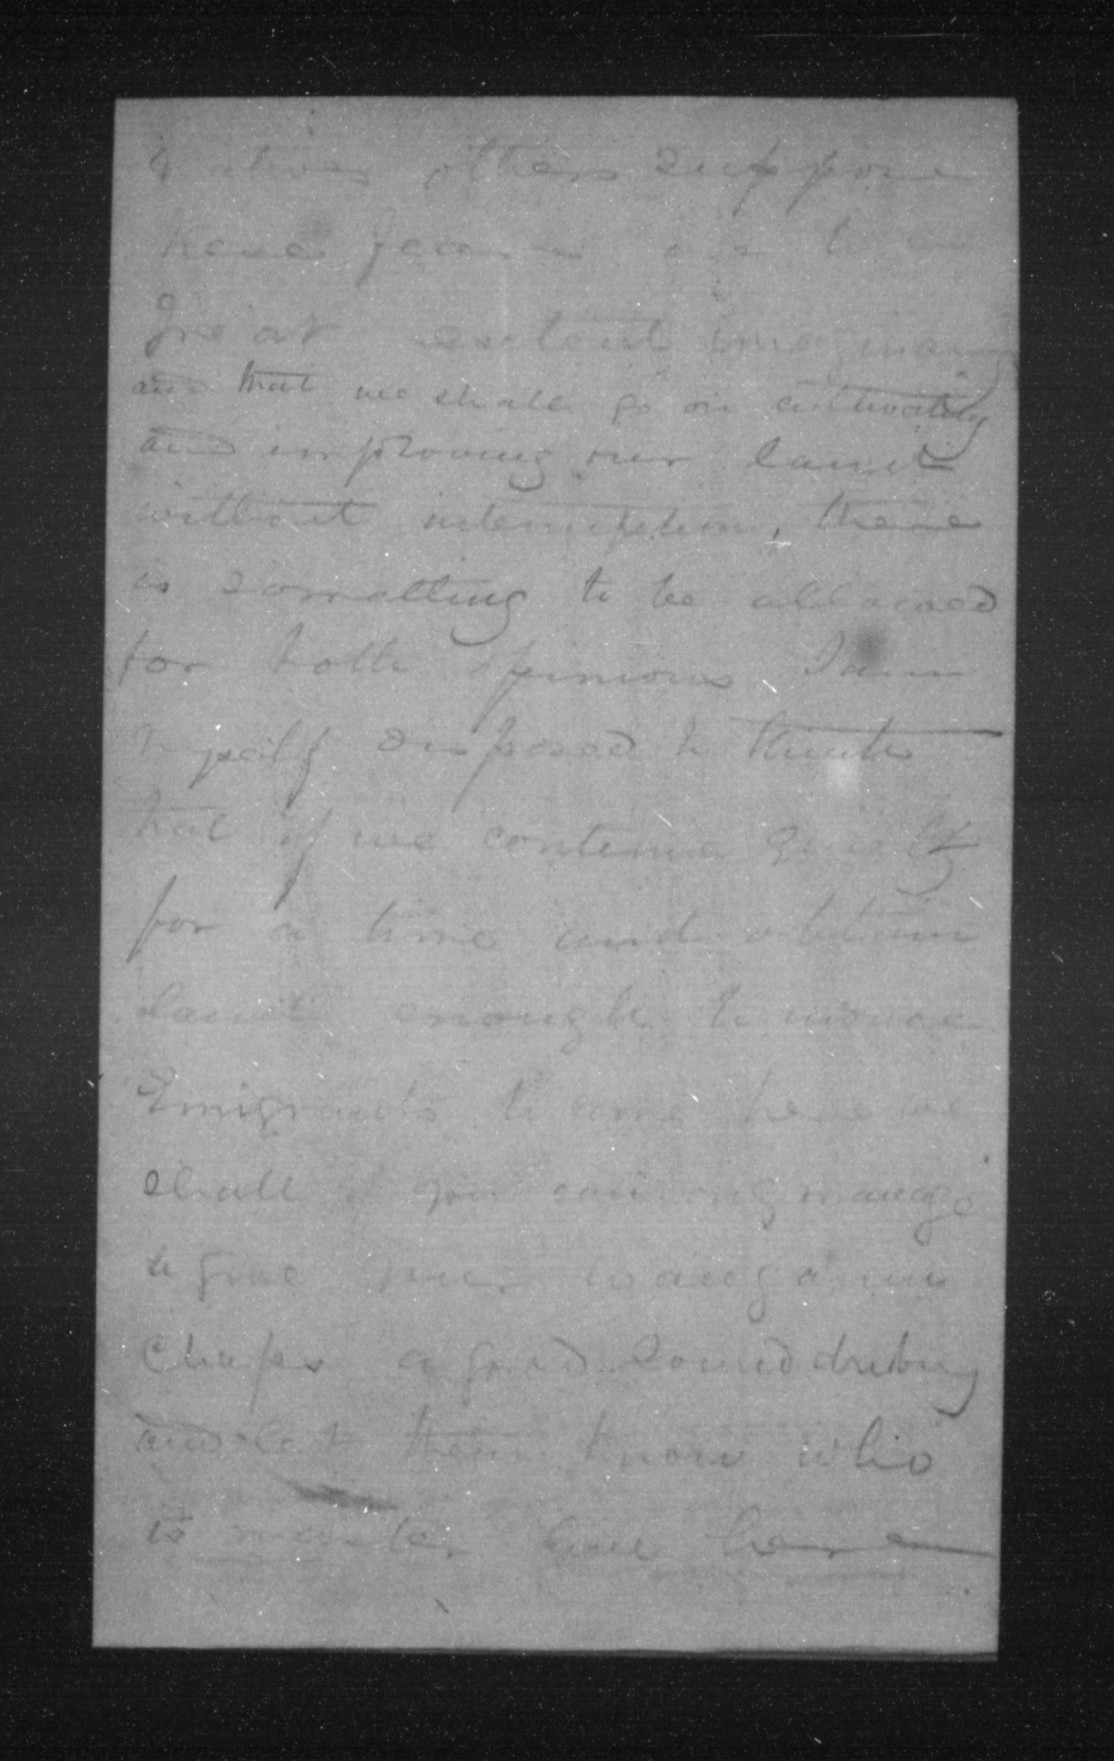 Natives others suppose
these fears are to a
great extent imaginary
and that we shall go on cultivating
and improving our land
without interruption, there
is something to be allowed
for both opinions I am
myself disposed to think
that if we continue quietly
for a time and obtain
land enough to induce
Emigrants to come here we
shall if you can only manage
to give your Wanganui
Chaps a good sound drubbing
and let them know who
is master here